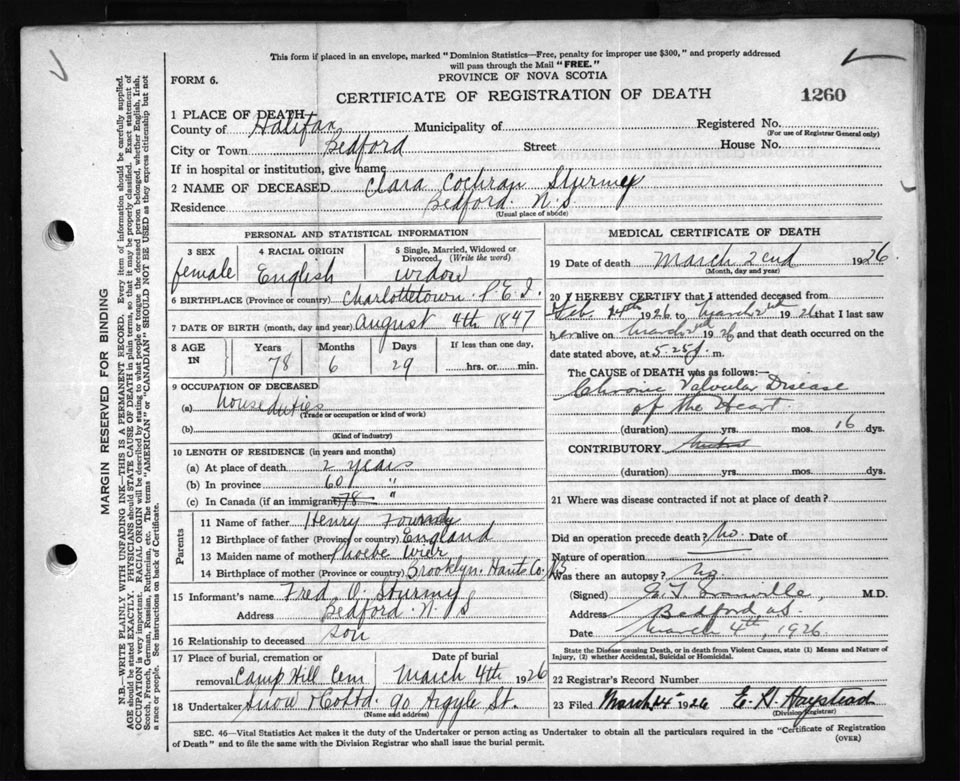 This form if placed in an envelope, marked "Dominion Statistics—Free, penalty for improper use $300," and properly addressed
will pass through the Mail "FREE."
FORM 6.
PROVINCE OF NOVA SCOTIA
CERTIFICATE OF REGISTRATION OF DEATH
1260
1 PLACE OF DEATH—
County of Halifax Municipality of Registered No.
(For use of Registrar General only)
City or Town Bedford Street House No.
If in hospital or institution, give name
2 NAME OF DECEASED Clara Cochran Sturmy
Residence Bedford. N.S.
(Usual place of abode)
PERSONAL AND STATISTICAL INFORMATION
3 SEX 4 RACIAL ORIGIN 5 Single, Married, Widowed or
Divorced, (Write the word)
female English widow
6 BIRTHPLACE (Province or country) Charlottetown. P.E.I.
7 DATE OF BIRTH (month, day and year) August 4th 1847
8 AGE Years Months Days If less than one day,
IN 78 6 29 hrs. or min.
9 OCCUPATION OF DECEASED
(a) house duties
(Trade or occupation or kind of work)
(b)
(Kind of industry)
10 LENGTH OF RESIDENCE (in years and months)
(a) At place of death 2 years
(b) In province 60 "
(c) In Canada (if an immigrant) 78 "
Parents
11 Name of father Henry
12 Birthplace of father (Province or country) England
13 Maiden name of mother Phoebe Wier
14 Birthplace of mother (Province or country) Brooklyn. Hants Co. N.S.
15 Informant's name Fred O. Sturmy
Address Bedford N S
16 Relationship to deceased son
17 Place of burial, cremation or Date of burial
removal Camp Hill Cem March 4th 1926
18 Undertaker Snow & Co Ltd. 90 Argyle St.
(Name and address)
MEDICAL CERTIFICATE OF DEATH
19 Date of death March 2end 1926.
(Month, day and year)
20 I HEREBY CERTIFY that I attended deceased from
Feb. 14th 1926 to March 2nd 1926 that I last saw
her alive on March 2nd 1926 and that death occurred on the
date stated above, at 5.25 p. m.
The CAUSE OF DEATH was as follows:—
Chronic Valvular Disease
of the Heart.
(duration) yrs. mos. 16 dys.
CONTRIBUTORY
(duration) yrs. mos. dys.
21 Where was disease contracted if not at place of death?
Did an operation precede death? No. Date of
Nature of operation
Was there an autopsy? no
(Signed) M.D.
Address Bedford, N.S.
Date March 4th, 1926
State the Disease causing Death, or in death from Violent Causes, state (1) Means and Nature of
Injury, (2) whether Accidental, Suicidal or Homicidal.
22 Registrar's Record Number
23 Filed March 1926 E. H.
(Division Registrar)
SEC. 46—Vital Statistics Act makes it the duty of the Undertaker or person acting as Undertaker to obtain all the particulars required in the "Certificate of Registration
of Death" and to file the same with the Division Registrar who shall issue the burial permit.
(OVER)
MARGIN RESERVED FOR BINDING
N.B.—WRITE PLAINLY WITH UNFADING INK—THIS IS A PERMANENT RECORD. Every item of information should be carefully supplied.
AGE should be stated EXACTLY. PHYSICIANS should STATE CAUSE OF DEATH in plain terms, so that it may be properly classified. Exact statement of
OCCUPATION is very important. RACIAL ORIGIN will be described by stating to what people or tongue the deceased person belonged, whether English, Irish,
Scotch, French, German, Russian, Ruthenian, etc. The terms "AMERICAN" or "CANADIAN" SHOULD NOT BE USED as they express citizenship but not
a race or people. See instructions on back of Certificate.